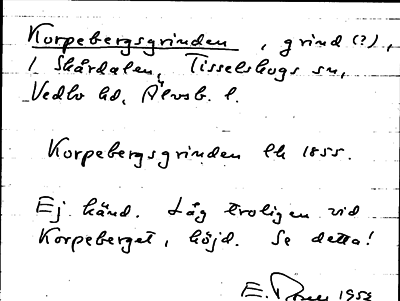 Korpebergsgrinden, grind (?),
i Skårdalen, Tisselskogs sn,
Vedbo hd, Älvsb. l.
Korpebergsgrinden lk 1855.
Ej känd. Låg troligen vid
Korpeberget, höjd. Se detta!
E. 1952